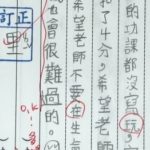 的功課都沒寫玩
和了4分,希望老師
希望老師不要在生氣
也會很難過的。
O.K!
訂正